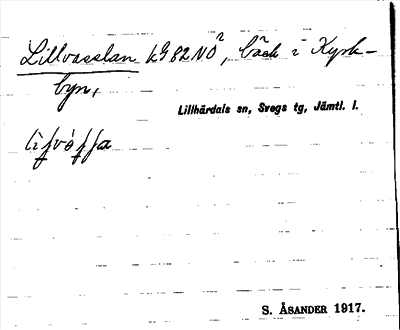 Lillvasslan LG 82 NO², bäck i Kyrk-
byn,
Lillhärdals sn, Svegs tg, Jämtl. l.
S. ÅSANDER 1917.